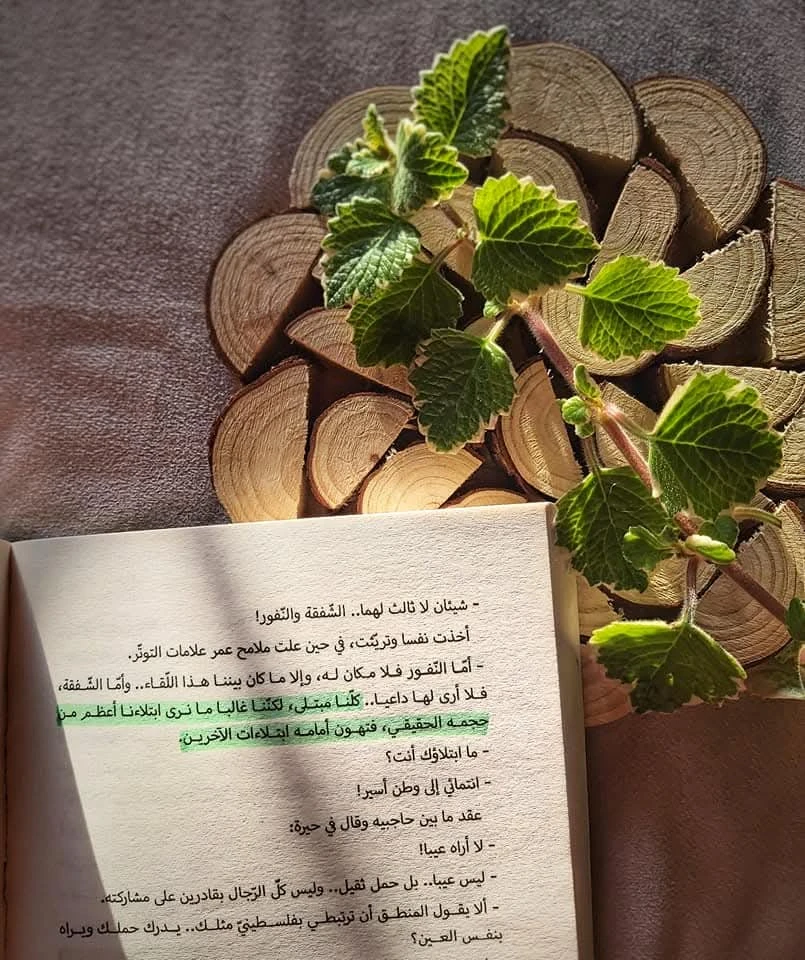 - شيئان لا ثالث لهما.. الشّفقة والنّفور!
أخذت نفسا وتريّثت، في حين علت ملامح عمر علامات التوتّر.
- أمّا النّفور فلا مكان له، وإلا ما كان بيننا هذا اللّقاء.. وأمّا الشّفقة،
فلا أرى لها داعيا.. كلّنا مبتلى، لكنّنا غالبا ما نرى ابتلاءنا أعظم من
حجمه الحقيقي، فتهون أمامه ابتلاءات الآخرين.
- ما ابتلاؤك أنت؟
- انتمائي إلى وطن أسير!
عقد ما بين حاجبيه وقال في حيرة:
- لا أراه عيبا!
- ليس عيبا.. بل حمل ثقيل.. وليس كلّ الرّجال بقادرين على مشاركته.
- ألا يقول المنطق أن ترتبطي بفلسطينيّ مثلك.. يدرك حملك ويراه
بنفس العين؟